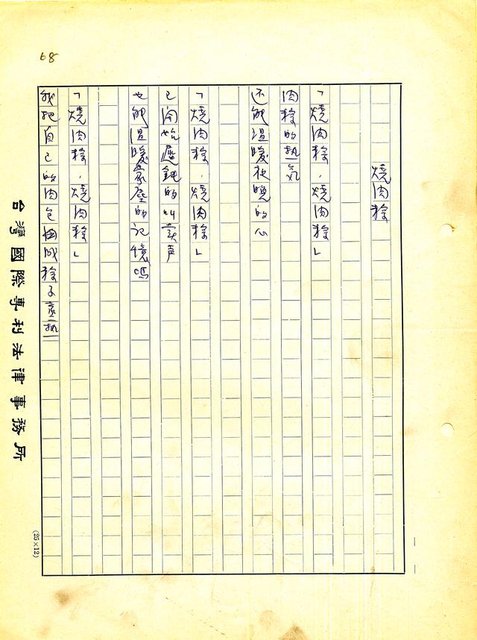 68
燒肉粽
「燒肉粽．燒肉粽」
肉粽的熱气
还能温暖夜晚的心
「燒肉粽．燒肉粽」
已開始遲鈍的叫賣声
也能温暖蒙塵的记憶嗎
「燒肉粽．燒肉粽」
我把自己的肉包捆成粽子煮熱
台灣國際專利法律事務所
(25×12)